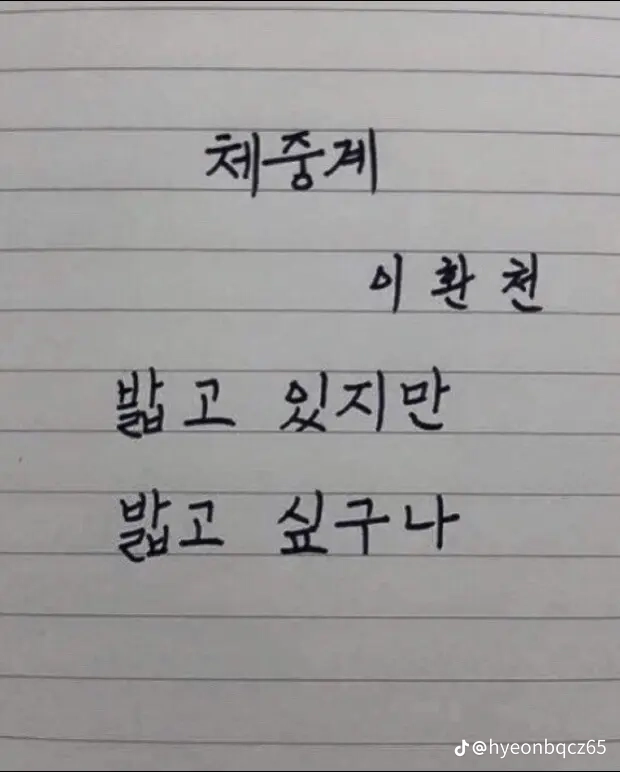 체중계
이 환 천
밟고 있지만
밟고 싶구나
@hyeonbqcz65